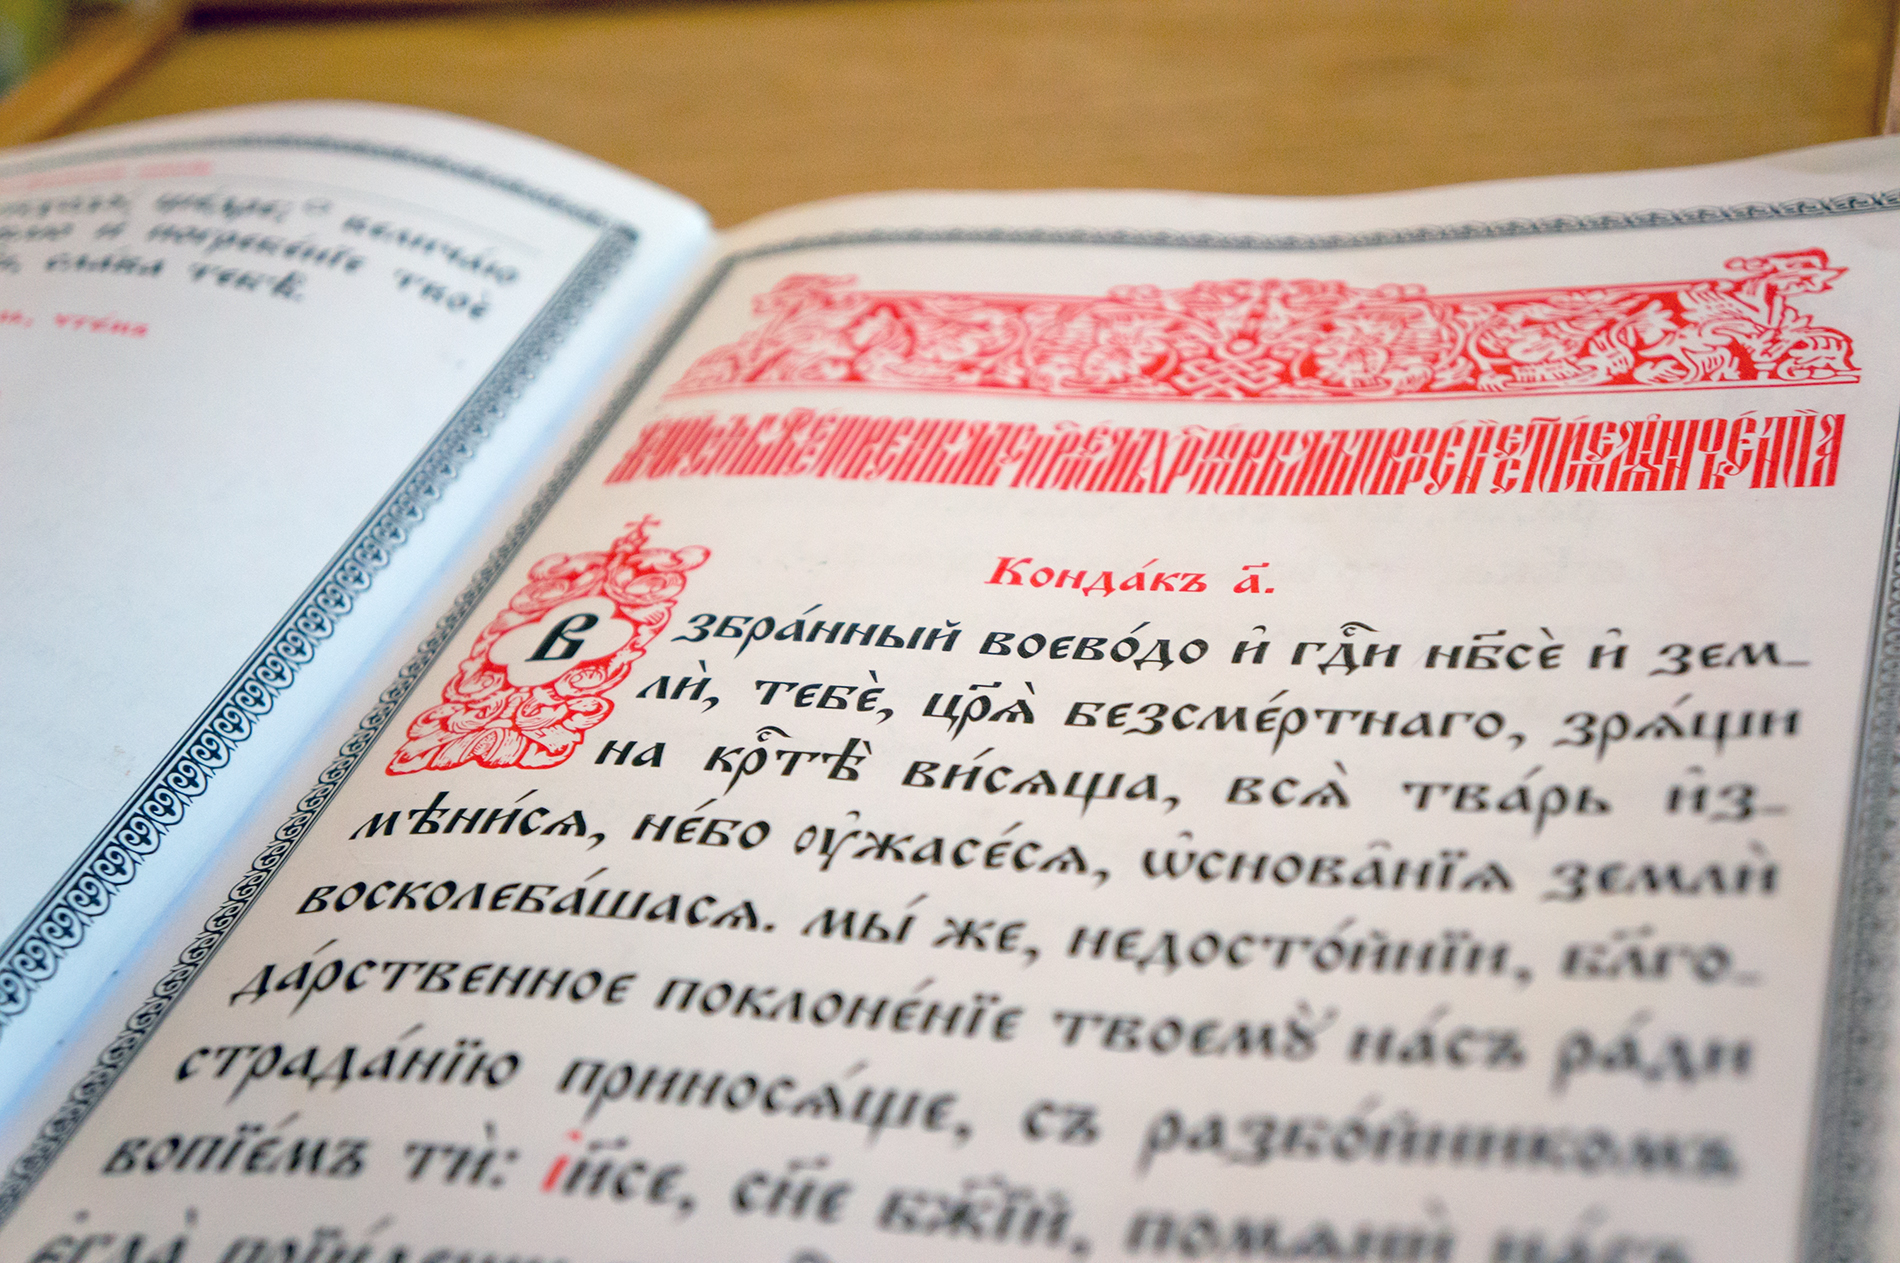 величаю
и погребе́нїе твоѐ
сла́ва тебѣ̀.
чте́нїя
Конда́къ а҃.
Взбра́нный воево́до и҆ гд҇и нб҃сѐ и҆ зем_
лѝ, тебѐ, цр҃ѧ̀ безсме́ртнаго, зрѧ́щи
на кр҇тѣ̀ ви́сѧща, всѧ̀ тва́рь и҆з_
мѣни́сѧ, не́бо ᲂу҆жасе́сѧ, ѡ҆снова̑нїѧ землѝ
восколеба́шасѧ. мы́ же, недосто́йнїи, бл҃го_
да́рственное поклоне́нїе твоемꙋ̀ на́съ ра́ди
страда́нїю приносѧ́ще, съ разбо́йникомъ
вопїе́мъ тѝ: і҆и҃се, сн҃е бж҃їй, помѧнѝ на́съ
є҆гда̀